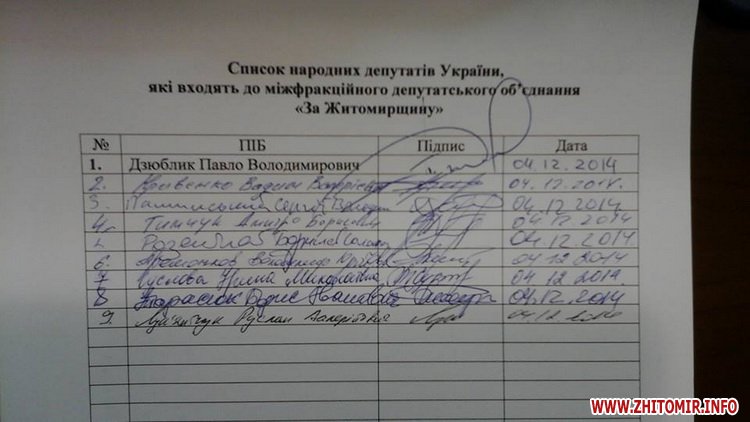 Список народних депутатів України,
які входять до міжфракційного депутатського об'єднання
«За Житомирщину»
№ ПІБ Підпис Дата
1. Дзюблик Павло Володимирович 04.12.2014
2. Кривенко Вадим 04.12.2014.
3. Пашинський Сергій 04.12.2014
4. Тимчук Дмитро Борисович 04.12.2014
Розенблат Борислав 04.12.2014
6. 04.12.2014
7 Суслова Ірина Миколаївна 04 12.2014.
8 Тарасюк Борис Іванович 04.12.2014
9. Лук'янчук Руслан Валерійович 04.12
WWW.ZHITOMIR.INFO